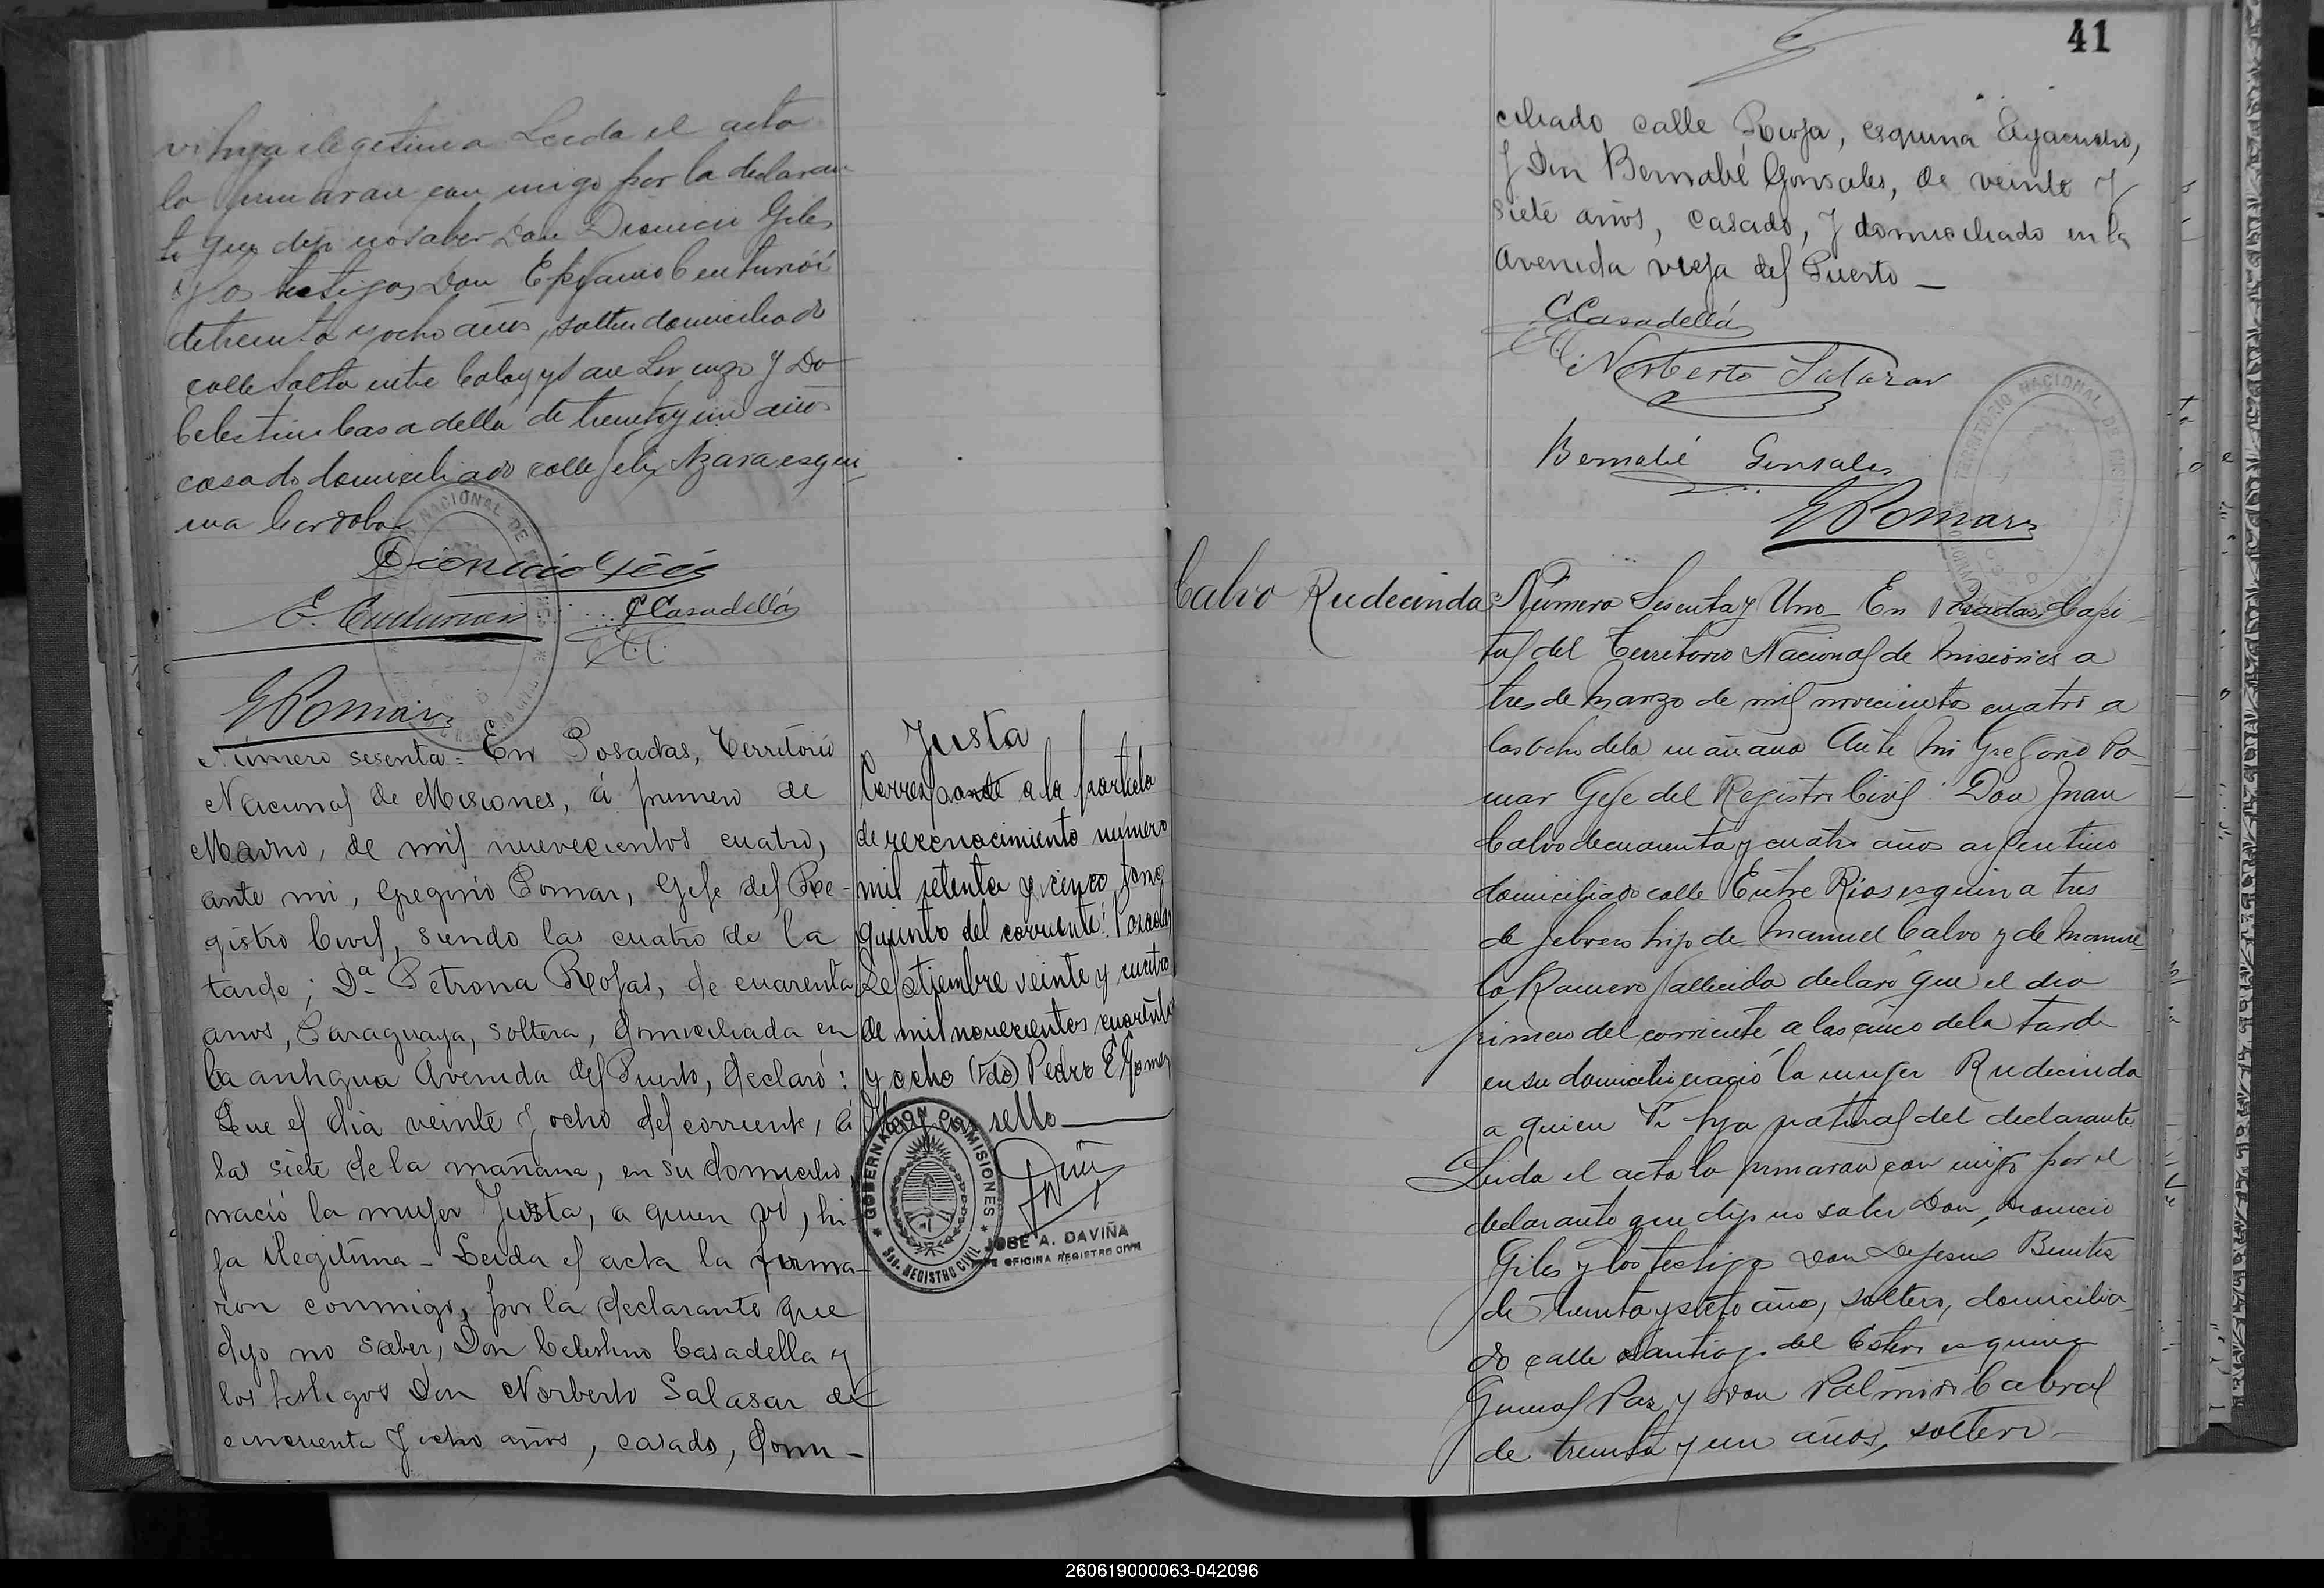 vi hija ilegitima Leida el acta
la firmaran con migo por la declaran
te que dijo no saber Don Dionicio Giles
y los testigos Don Epifanio Centurión
de treinta y ocho años, soltero domiciliado
calle Salta entre Colon y San Lorenzo y Do
Celestino Casadella de treinta y un años
casado domiciliado calle Felix Azara esqui
na Cordoba
Dionicio Giles
E. Centurion
C Casadellá
G Pomar
Número sesenta = En Posadas, Territorio
Nacional de Misiones, á primero de
Marzo, de mil nuevecientos cuatro,
ante mi, Gregorio Pomar, Gefe del Re-
gistro Civil, siendo las cuatro de la
tarde; Da. Petrona Rojas, de cuarenta
anos, Paraguaya, soltera, domiciliada en
la antigua Avenida del Puerto, declaró:
Que el dia veinte y ocho del corriente, á
las siete de la mañana, en su domicilio
nació la mujer Justa, a quien vi, hi-
ja ilegitima - Leida el acta la firma-
ron conmigo, por la declarante que
dijo no saber, Don Celestino Casadella y
los testigos Don Norberto Salasar de
cincuenta y ocho años, casado, domi-
Justa
Corresponde a la partida
de reconocimiento número
mil setenta y cinco, tomo
quinto del corriente: Posadas
Septiembre veinte y cuatro
de mil novecientos cuarenta
y ocho (Fdo) Pedro E Gomez
Hay un sello
GOBERNACION DE MISIONES
REGISTRO CIVIL
JOSE A. DAVIÑA
JEFE OFICINA REGISTRO CIVIL
41
ciliado calle Rioja, esquina Ayacucho,
y Don Bernabé Gonsales, de veinte y
siete años, casado, y domiciliado en la
Avenida vieja del Puerto -
C Casadellá
Norberto Salazar
Bernabé Gonsales
G Pomar
TERRITORIO NACIONAL DE
Calvo Rudecinda
Número Sesenta y Uno - En Posadas, Capi-
tal del Territorio Nacional de Misiones a
tres de Marzo de mil novecientos cuatro a
las ocho de la mañana Ante mi Gregorio Po-
mar Gefe del Registro Civil: Don Juan
Calvo de cuarenta y cuatro años argentino
domiciliado calle Entre Rios esquina tres
de febrero hijo de Manuel Calvo y de Manue-
la Ramero fallecida declaró que el dia
primero del corriente a las cinco de la tarde
en su domicilio nació la mujer Rudecinda
a quien vi hija natural del declarante
Leida el acta la firmaran con migo por el
declarante que dijo no saber Don Dionicio
Giles y los testigos Don DeJesus Benites
de treinta y siete años, soltero, domicilia-
do calle Santiago del Estero esquina
General Paz y Don Palmiro Cabral
de treinta y un años, soltero -
260619000063-042096